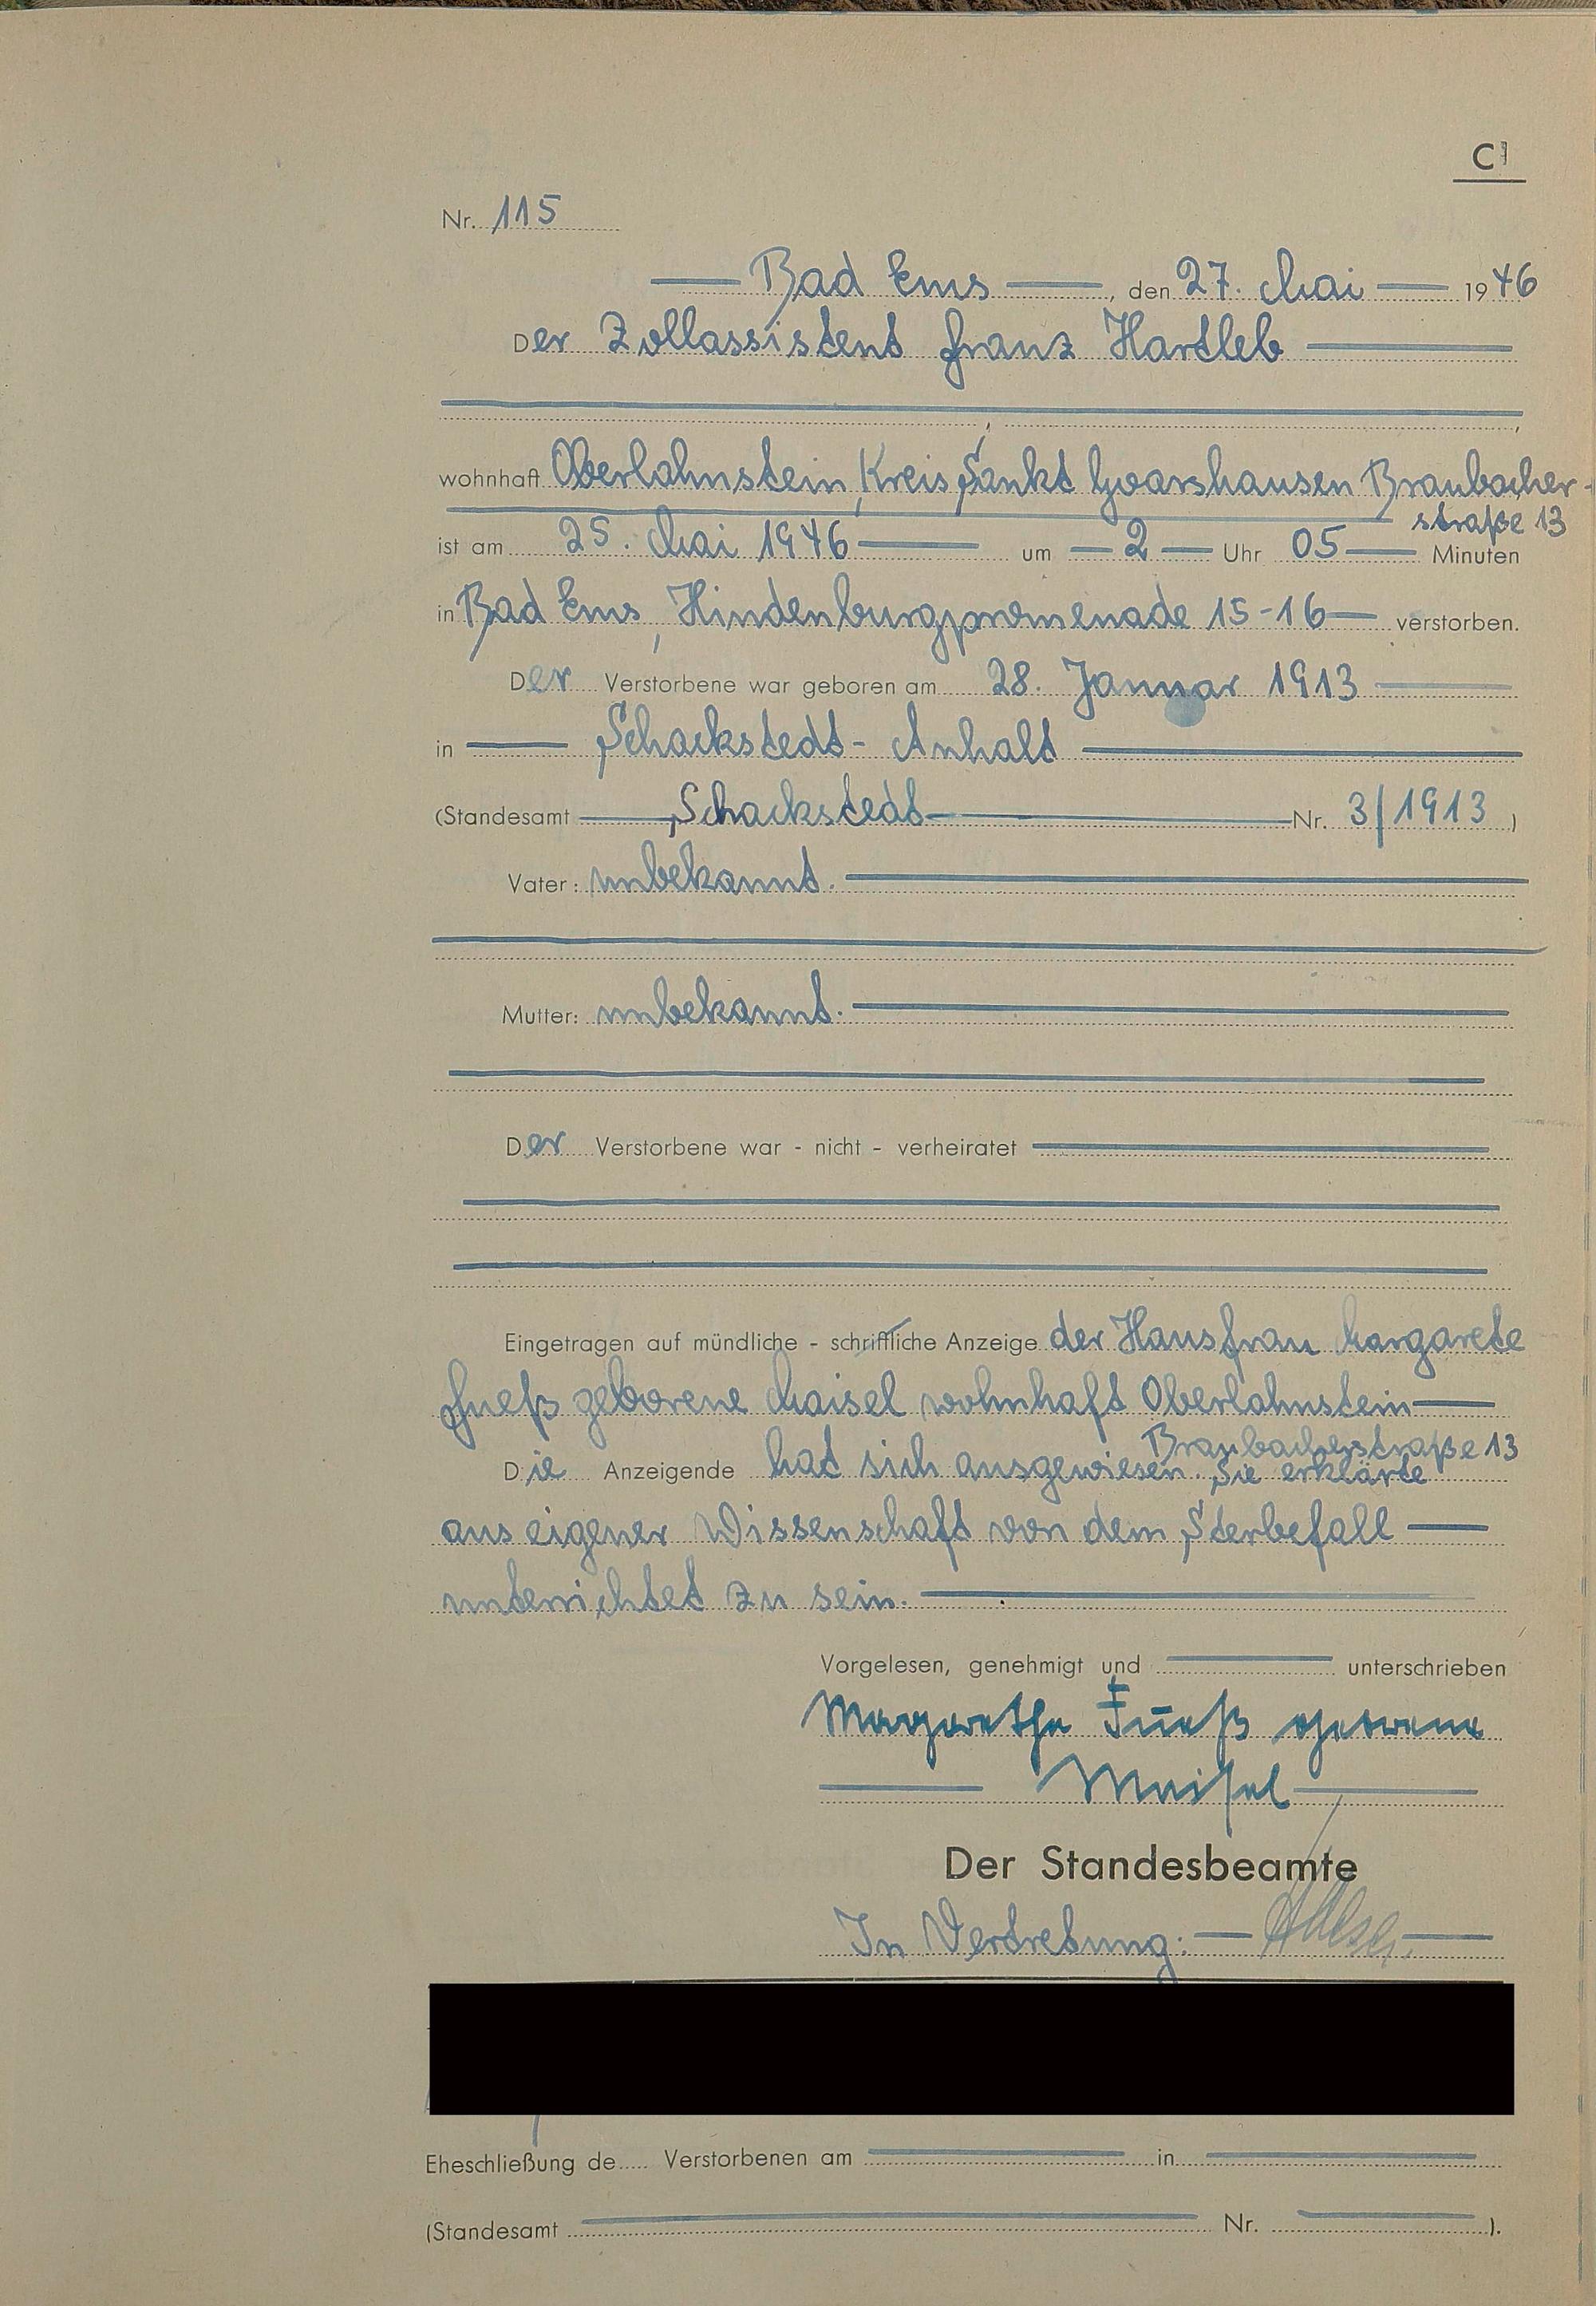 C
Nr. 115
Bad Ems, den 27. Mai 1946
Der Zollassistent Franz Hartleb
wohnhaft Oberlahnstein, Kreis Sankt Goarshausen Braubacher-
straße 13
ist am 25. Mai 1946 um 2 Uhr 05 Minuten
in Bad Ems, Hindenburgpromenade 15-16 verstorben.
Der Verstorbene war geboren am 28. Januar 1913
in Schackstedt-Anhalt
(Standesamt Schackstedt Nr. 3/1913)
Vater: unbekannt.
Mutter: unbekannt.
Der Verstorbene war - nicht - verheiratet
Eingetragen auf mündliche - schriftliche Anzeige der Hausfrau Margarete
Fueß geborene Maisel wohnhaft Oberlahnstein
Braubacherstraße 13
Die Anzeigende hat sich ausgewiesen. Sie erklärte
aus eigener Wissenschaft von dem Sterbefall
unterrichtet zu sein.
Vorgelesen, genehmigt und unterschrieben
Margarethe Fueß geborene
Maisel
Der Standesbeamte
In Vertretung:
Eheschließung de Verstorbenen am in
(Standesamt Nr. ).